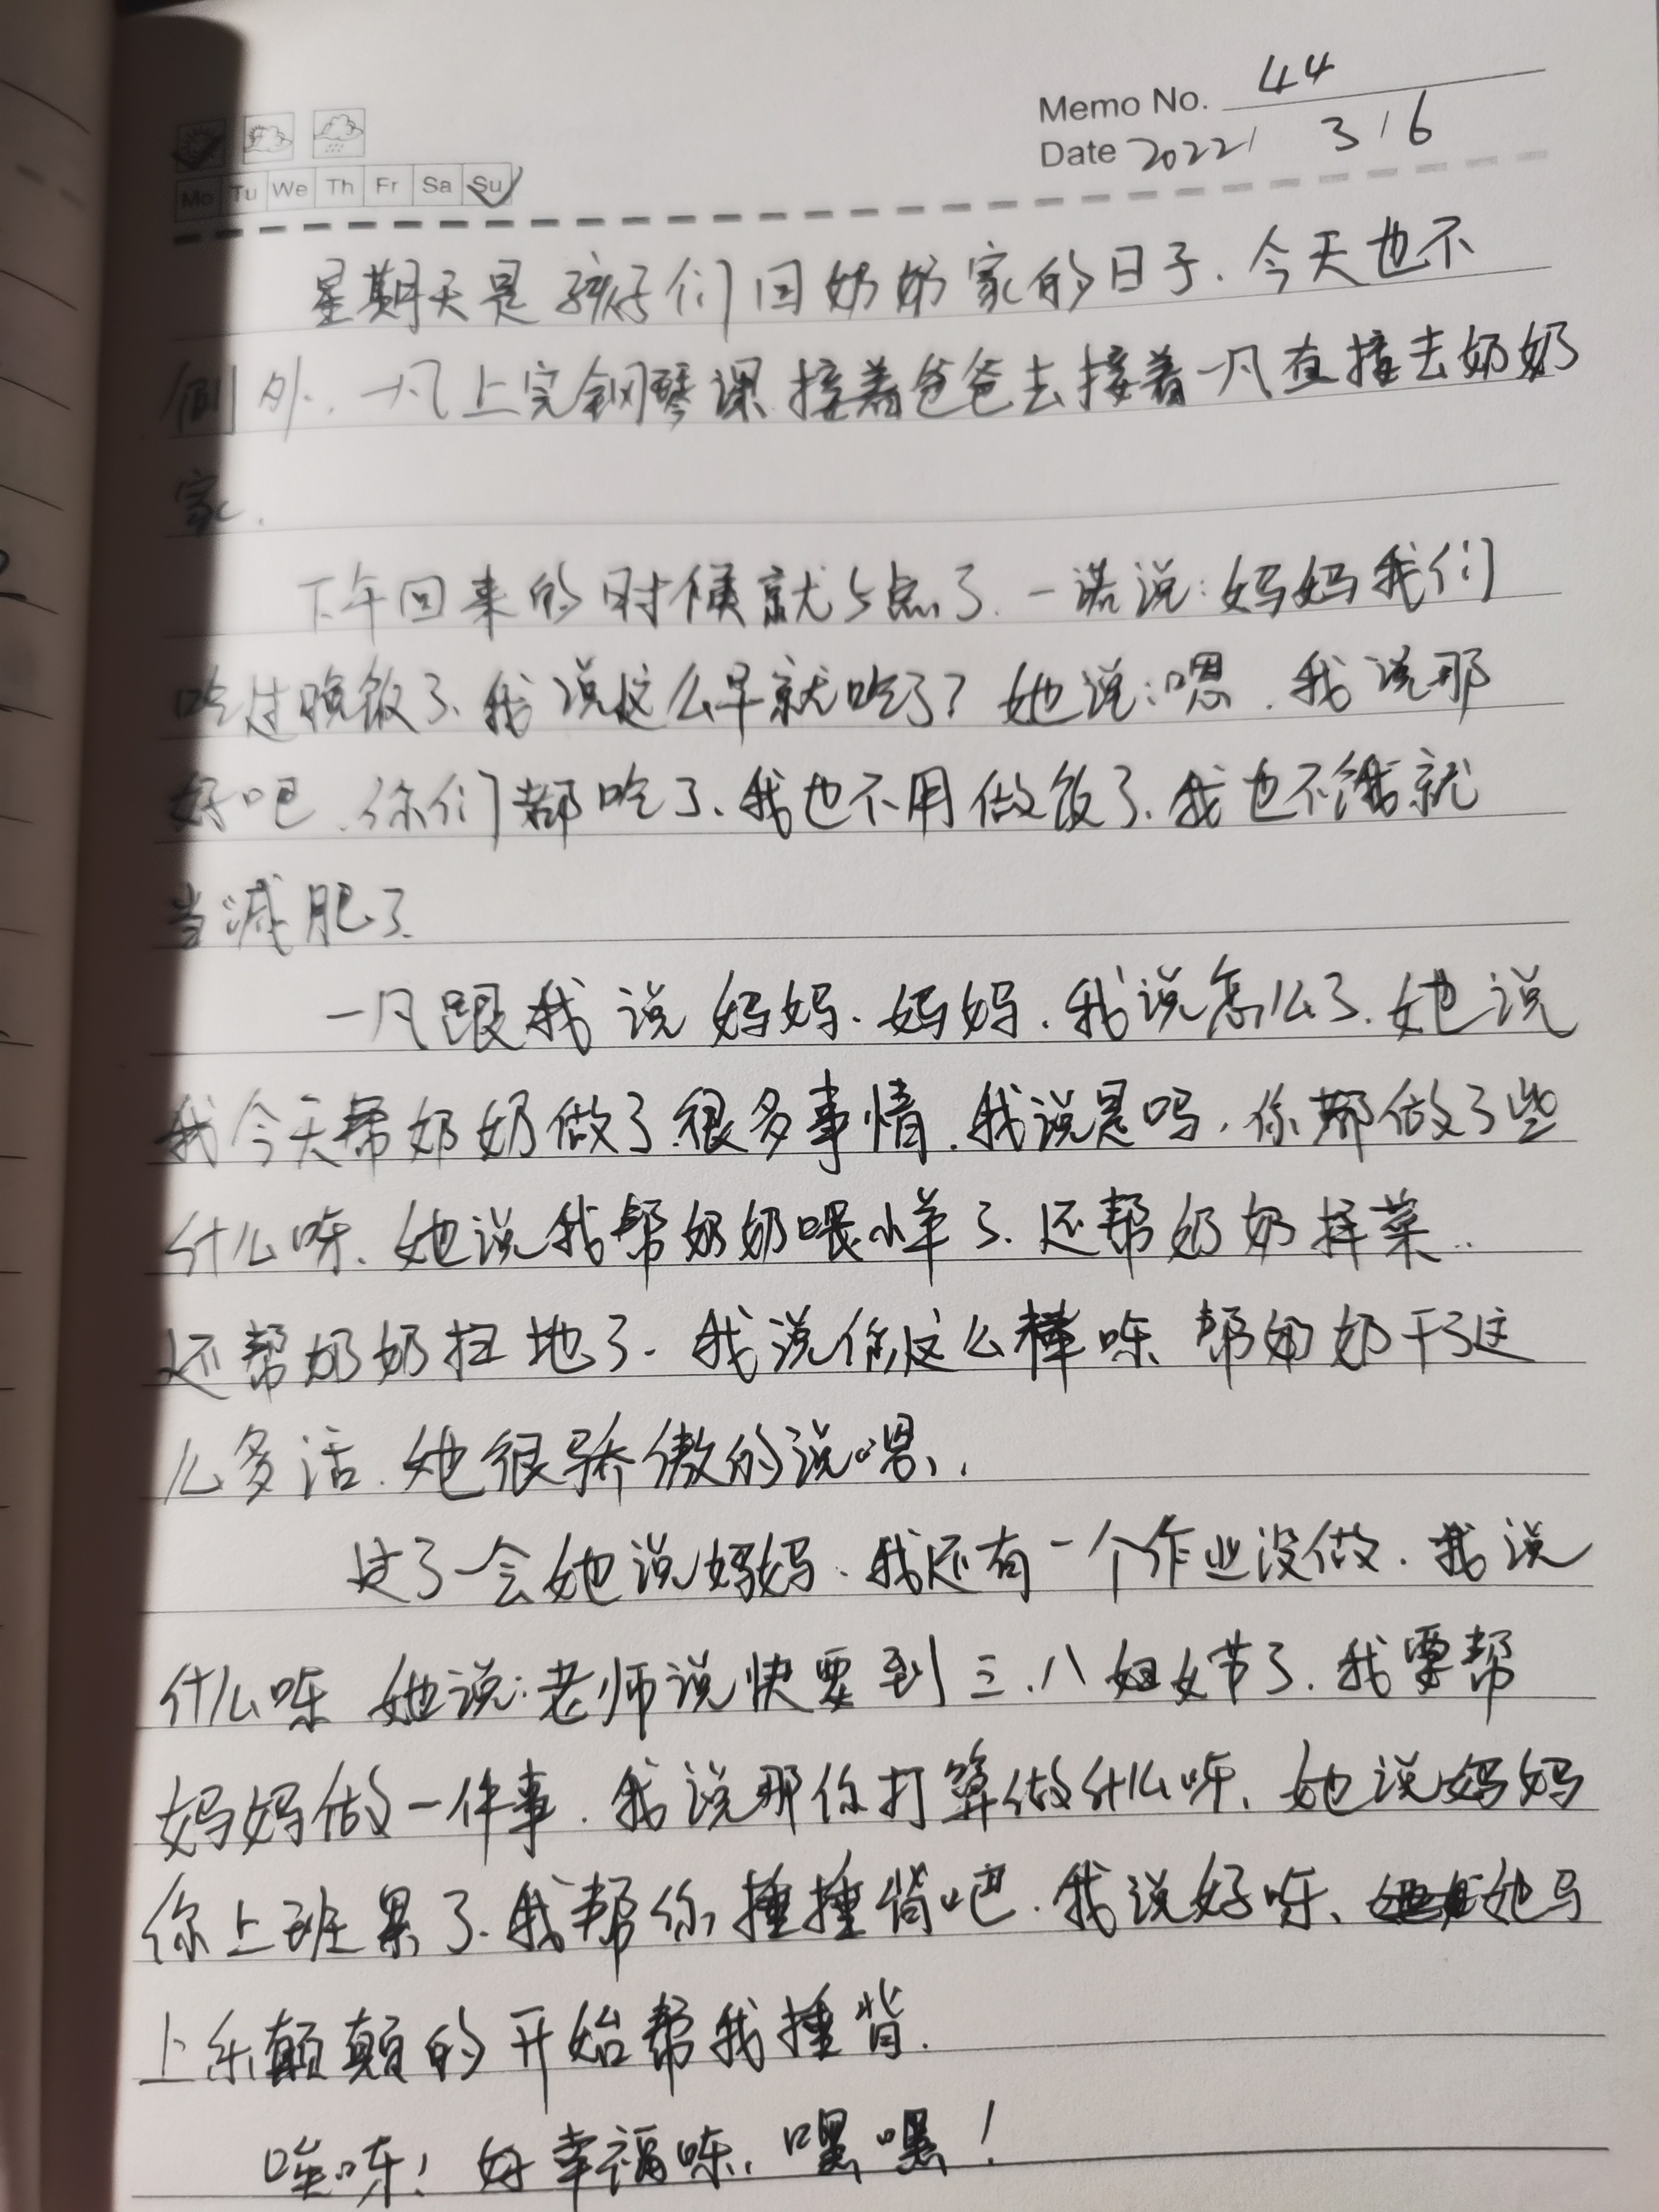 Memo No. 44
Mo Tu We Th Fr Sa Su
Date 2022 / 3 / 6
星期天是孩子们回奶奶家的日子.今天也不
例外.一凡上完钢琴课.接着爸爸去接着一凡直接去奶奶
家.
下午回来的时候就5点了.一诺说:妈妈我们
吃过晚饭了、我说这么早就吃了?她说:嗯.我说那
好吧.你们都吃了、我也不用做饭了、我也不饿就
当减肥了.
一凡跟我说妈妈、妈妈.我说怎么了.她说
我今天帮奶奶做了很多事情.我说是吗.你都做了些
什么呀、她说我帮奶奶喂小羊了、还帮奶奶择菜..
还帮奶奶扫地了.我说你这么棒呀、帮奶奶干了这
么多活.她很骄傲的说嗯、.
过了一会她说妈妈、我还有一个作业没做.我说
什么呀 她说:老师说快要到三.八妇女节了.我要帮
妈妈做一件事.我说那你打算做什么呀、她说妈妈
你上班累了、我帮你捶捶背吧.我说好呀、她马
上乐颠颠的开始帮我捶背.
哎呀!好幸福呀、嘿嘿!